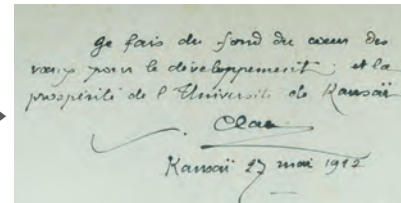 Je fais du fond du cœur des
vœux pour le développement et la
prospérité de l'Université de Kansaï
Kansaï 27 mai 1922